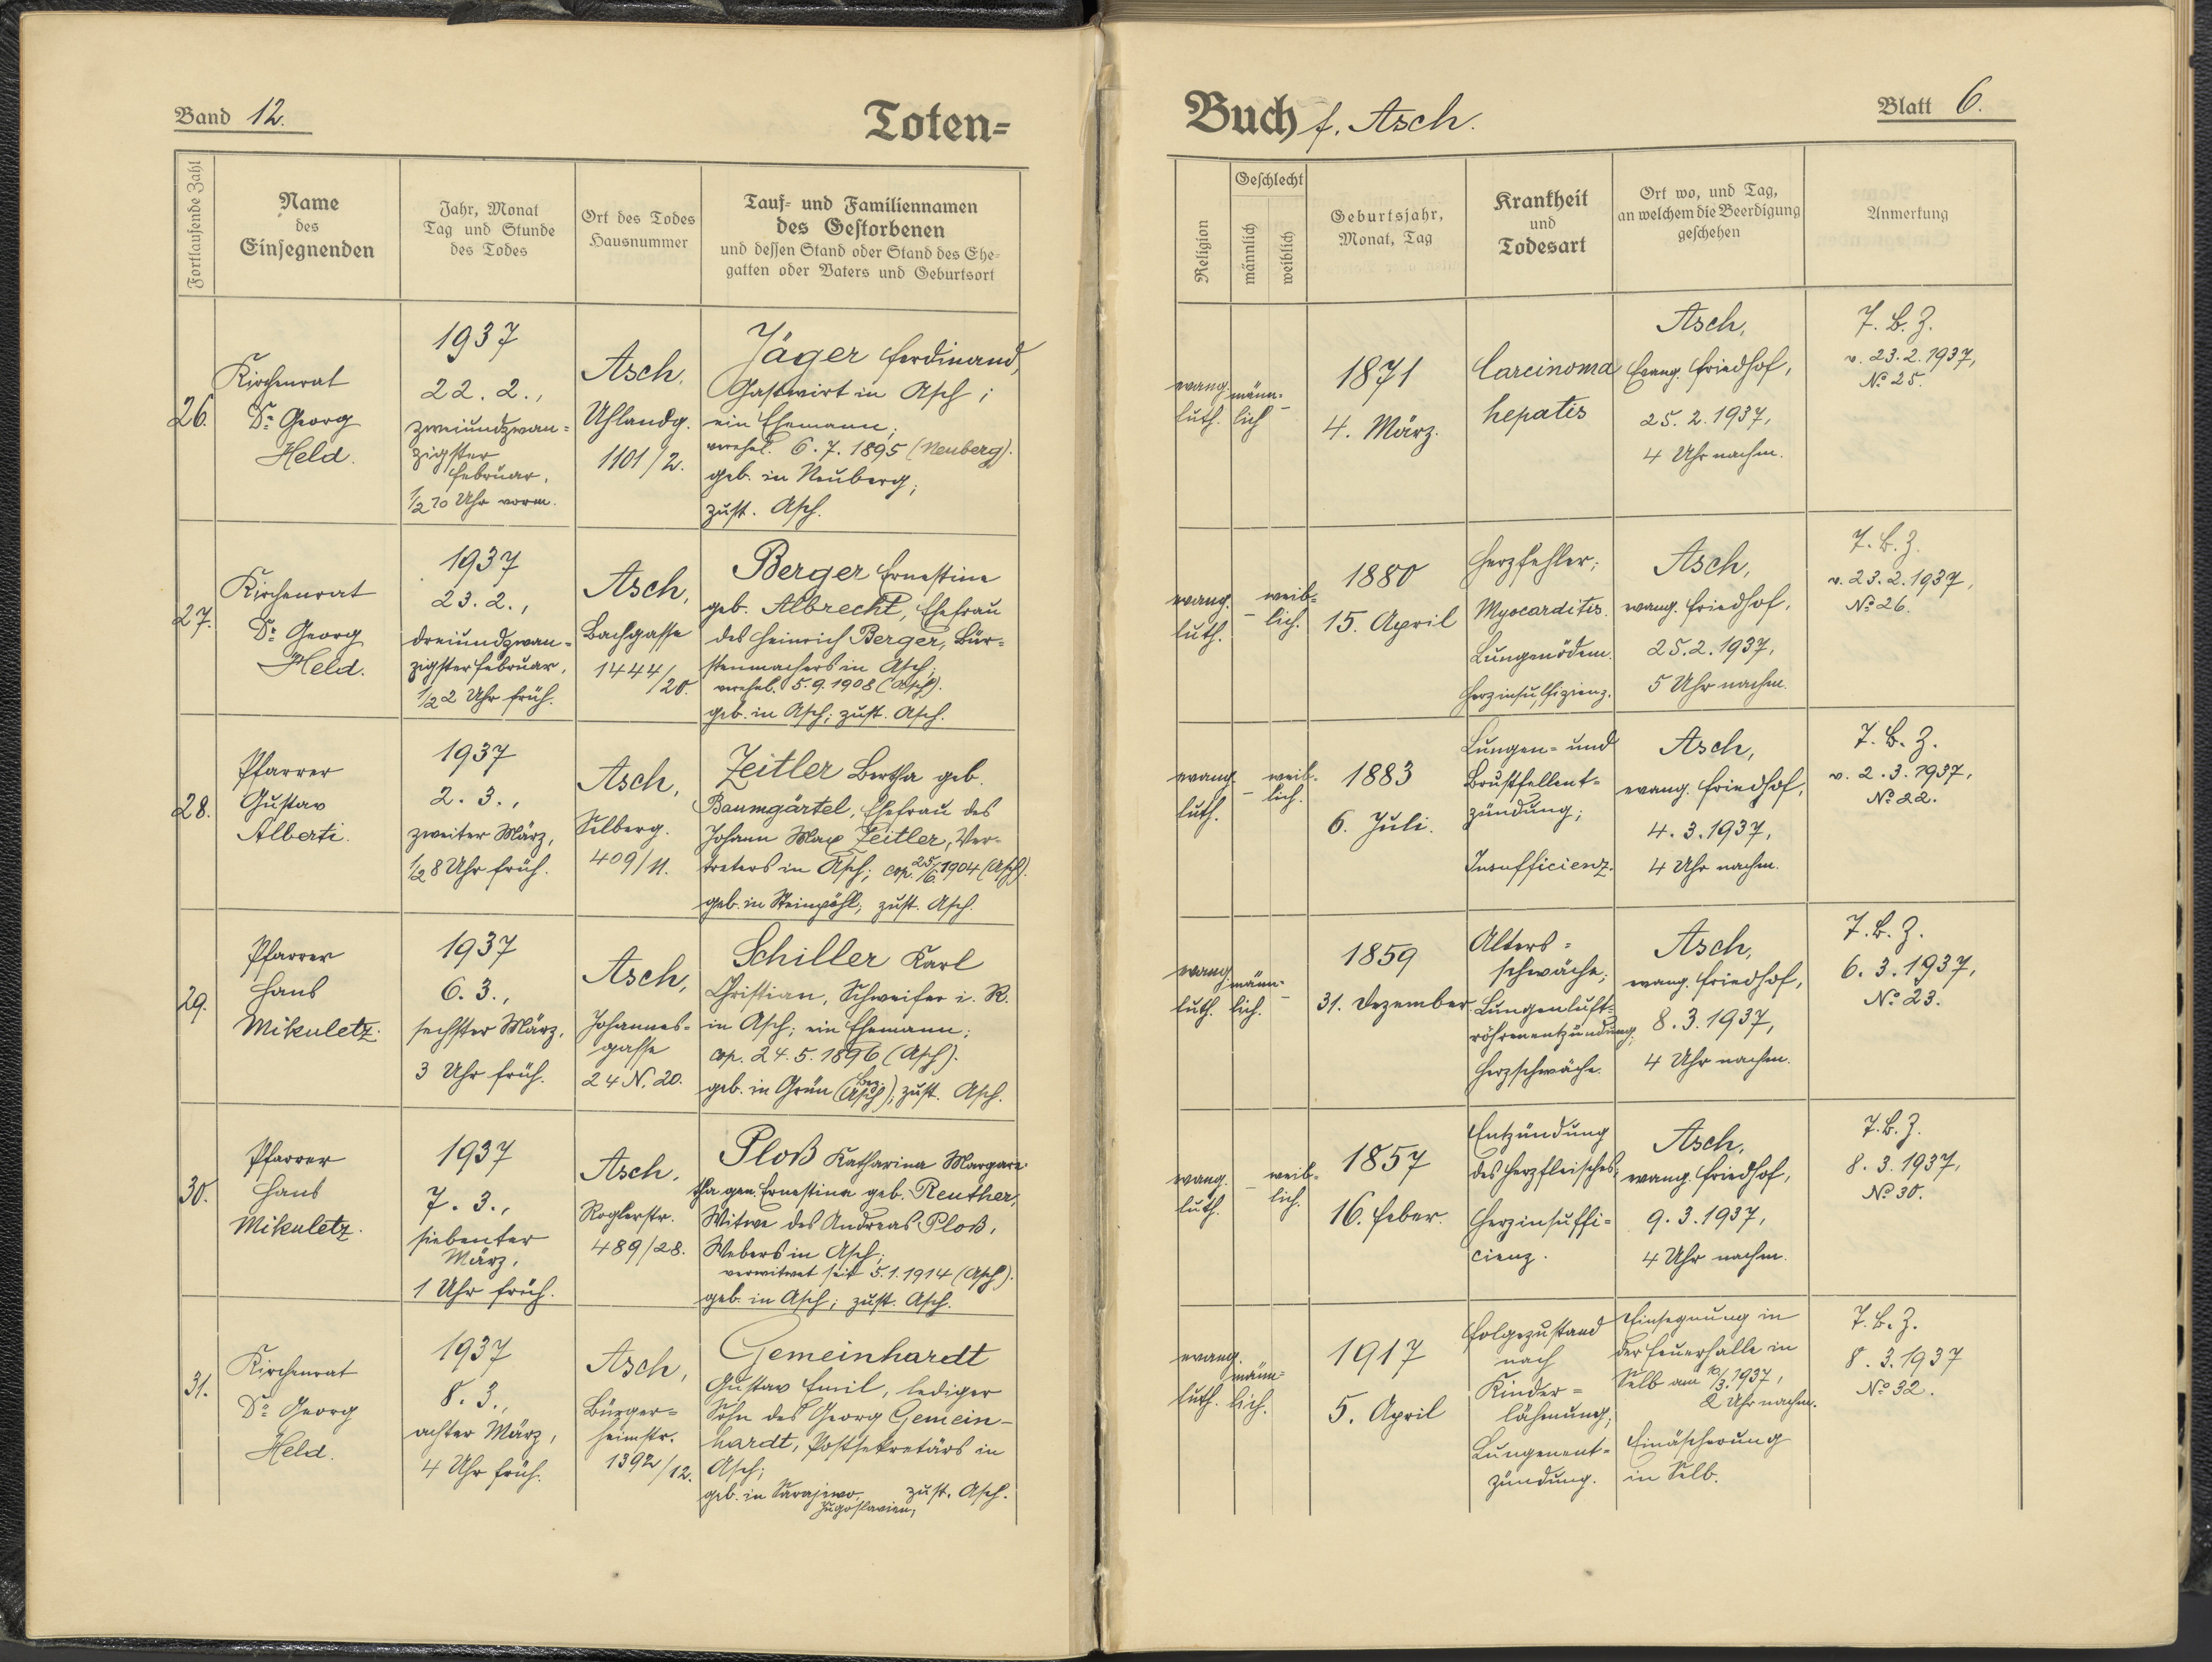 Band 12.
Toten=
Fortlaufende Zahl
Name
des
Einsegnenden
Jahr, Monat
Tag und Stunde
des Todes
Ort des Todes
Hausnummer
Tauf- und Familiennamen
des Gestorbenen
und dessen Stand oder Stand des Ehe-
gatten oder Vaters und Geburtsort
26.
Kirchenrat
Dr. Georg
Held.
1937
22. 2.,
zweiundzwan=
zigster
Februar,
1/2 10 Uhr vorm.
Asch,
Uhlandg.
1101/2.
Jäger Ferdinand,
Gastwirt in Asch;
ein Ehemann;
verehel. 6. 7. 1895 (Neuberg).
geb. in Neuberg;
zust. Asch.
27.
Kirchenrat
Dr. Georg
Held.
1937
23. 2.,
dreiundzwan=
zigster Februar,
1/2 2 Uhr früh.
Asch,
Bachgasse
1444/20.
Berger Ernestine
geb. Albrecht, Ehefrau
des Heinrich Berger, Bür=
stenmachers in Asch;
verehel. 5. 9. 1908 (Asch).
geb. in Asch; zust. Asch.
28.
Pfarrer
Gustav
Alberti.
1937
2. 3.,
zweiter März,
1/2 8 Uhr früh.
Asch,
Selberg.
409/11.
Zeitler Bertha geb.
Baumgärtel, Ehefrau des
Johann Max Zeitler, Ver=
treters in Asch; cop. 25/6. 1904 (Asch).
geb. in Steinpöhl; zust. Asch.
29.
Pfarrer
Hans
Mikuletz.
1937
6. 3.,
sechster März,
3 Uhr früh.
Asch,
Johannes=
gasse
24 N. 20.
Schiller Karl
Christian, Schweifer i. R.
in Asch; ein Ehemann;
cop. 24. 5. 1896 (Asch).
geb. in Grün (Bez. Asch); zust. Asch.
30.
Pfarrer
Hans
Mikuletz.
1937
7. 3.,
siebenter
März,
1 Uhr früh.
Asch,
Roglerstr.
489/28.
Ploß Katharina Margare=
tha gen. Ernestina geb. Reuther,
Witwe des Andreas Ploß,
Webers in Asch;
verwitwet seit 5. 1. 1914 (Asch).
geb. in Asch; zust. Asch.
31.
Kirchenrat
Dr. Georg
Held.
1937
8. 3.,
achter März,
4 Uhr früh.
Asch,
Bürger=
heimstr.
1392/12.
Gemeinhardt
Gustav Emil, lediger
Sohn des Georg Gemein-
hardt, Postsekretärs in
Asch;
geb. in Sarajewo, zust. Asch.
Jugoslavien;
Buch f. Asch.
Blatt 6.
Religion
Geschlecht
männlich
weiblich
Geburtsjahr,
Monat, Tag
Krankheit
und
Todesart
Ort wo, und Tag,
an welchem die Beerdigung
geschehen
Anmerkung
evang.
luth.
männ=
lich
–
1871
4. März.
Carcinoma
hepatis
Asch,
Evang. Friedhof,
25. 2. 1937,
4 Uhr nachm.
T. B. Z.
v. 23. 2. 1937,
No 25.
evang.
luth.
–
weib=
lich.
1880
15. April
Herzfehler;
Myocarditis.
Lungenödem.
Herzinsuffizienz.
Asch,
evang. Friedhof,
25. 2. 1937,
5 Uhr nachm.
T. B. Z.
v. 23. 2. 1937,
No 26.
evang.
luth.
–
weib=
lich.
1883
6. Juli.
Lungen= und
Brustfellent=
zündung;
Insufficienz.
Asch,
evang. Friedhof,
4. 3. 1937,
4 Uhr nachm.
T. B. Z.
v. 2. 3. 1937,
No 22.
evang.
luth.
männ=
lich.
–
1859
31. Dezember
Alters=
schwäche;
Lungenluft=
röhrenentzündung;
Herzschwäche.
Asch,
evang. Friedhof,
8. 3. 1937,
4 Uhr nachm.
T. B. Z.
6. 3. 1937,
No 23.
evang.
luth.
–
weib=
lich.
1857
16. Feber.
Entzündung
des Herzfleisches;
Herzinsuffi=
cienz.
Asch,
evang. Friedhof,
9. 3. 1937,
4 Uhr nachm.
T. B. Z.
8. 3. 1937,
No 30.
evang.
luth.
männ=
lich.
1917
5. April
Folgezustand
nach
Kinder=
lähmung;
Lungenent=
zündung.
Einsegnung in
der Feuerhalle in
Selb am 10/3. 1937,
2 Uhr nachm.
Einäscherung
in Selb.
T. B. Z.
8. 3. 1937
No 32.